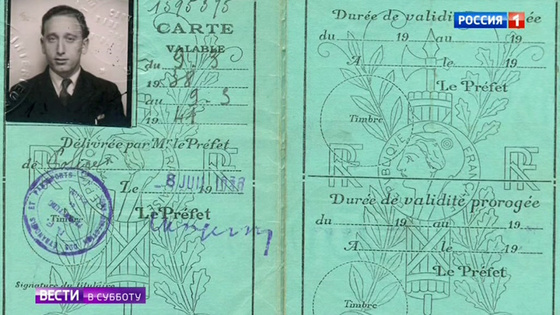 1395375
CARTE
VALABLE
du 9-3
1938
au 9-3
1941
Délivrée par Mr. le Préfet
de
Le 8 JUIL 1938
Timbre Le Préfet
Signature du titulaire
Durée de validité prorogée
du 19 au 19
A le 19
Le Préfet
Timbre
RF
Durée de validité prorogée
du 19 au 19
A le 19
Le Préfet
Timbre
РОССИЯ 1
ВЕСТИ В СУББОТУ